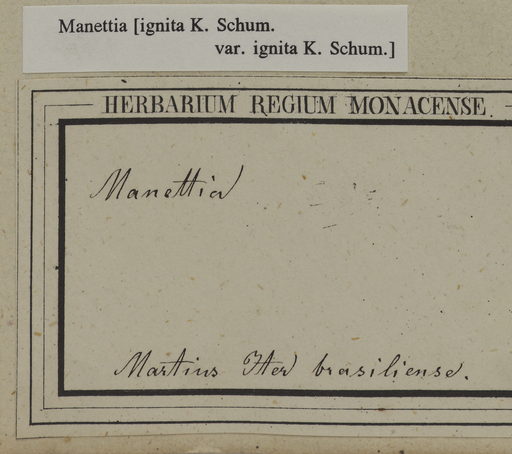 Manettia [ignita K. Schum.
var. ignita K. Schum.]
HERBARIUM REGIUM MONACENSE.
Manettia
Martius Iter brasiliense.